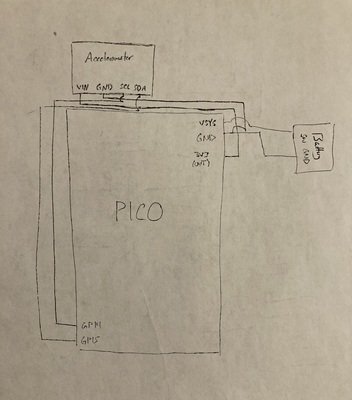 Accelerometer
VIN GND SCL SDA
VSYS
GND
3V3
(OUT)
Battery
5V GND
PICO
GP14
GP15